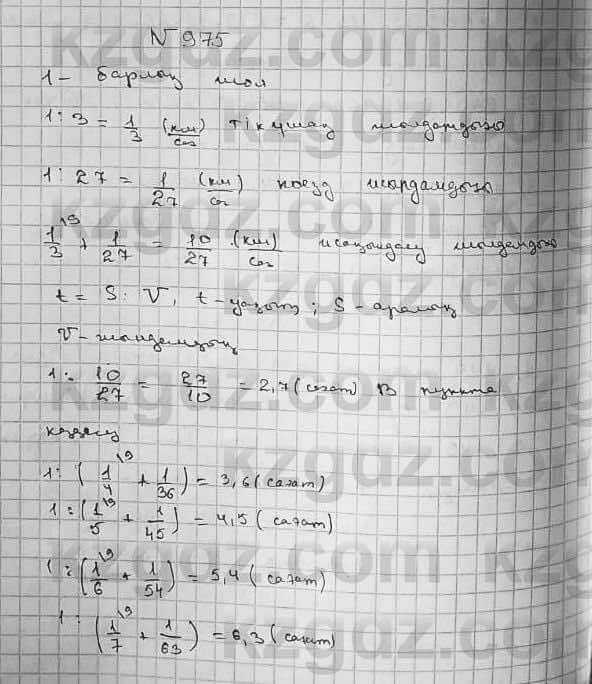 N 975
1 - барлық жол
1 : 3 = 1/3 (км/сағ) тікұшақ жылдамдығы
1 : 27 = 1/27 (км/сағ) поезд жылдамдығы
1/3 \9 + 1/27 = 10/27 (км/сағ) жақындасу жылдамдығы
t = S : V, t - уақыт ; S - аралық
V - жылдамдық
1 : 10/27 = 27/10 = 2,7 (сағат) В пункте
кездесу
1 : ( 1/4 \9 + 1/36 ) = 3,6 (сағат)
1 : ( 1/5 \9 + 1/45 ) = 4,5 (сағат)
1 : ( 1/6 \9 + 1/54 ) = 5,4 (сағат)
1 : ( 1/7 \9 + 1/63 ) = 6,3 (сағат)
kzgdz.com